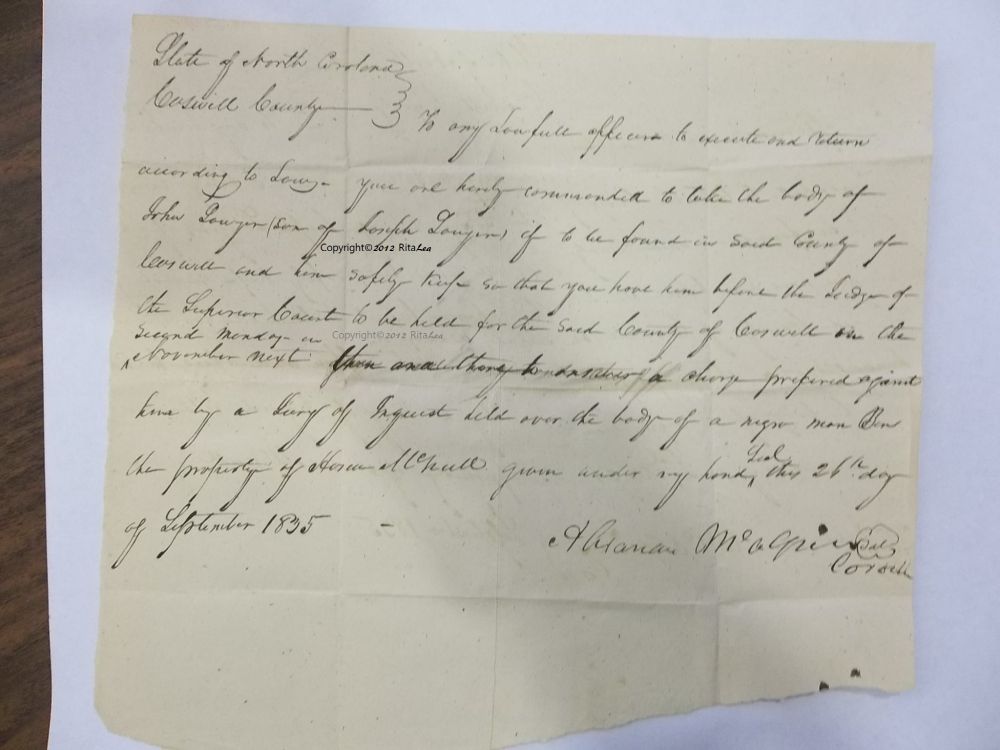 State of North Carolina
Caswell County
To any Lawfull officer to execute and return
according to Law. you are hereby commanded to take the body of
John Sawyer (son of Joseph Sawyer) if to be found in said County of
Copyright©2012 RitaLea
Caswell and him safely Keep so that you have him before the Judge of
the Superior Court to be held for the said County of Caswell on the
Copyright©2012 RitaLea
Second Monday in
November next then and there to answer a charge prefered against
him by a Jury of Inquest held over the body of a negro man Ben
the property of McNeill given under my hand & Seal this 26th day
of September 1835
McAlpin Seal
Coroner